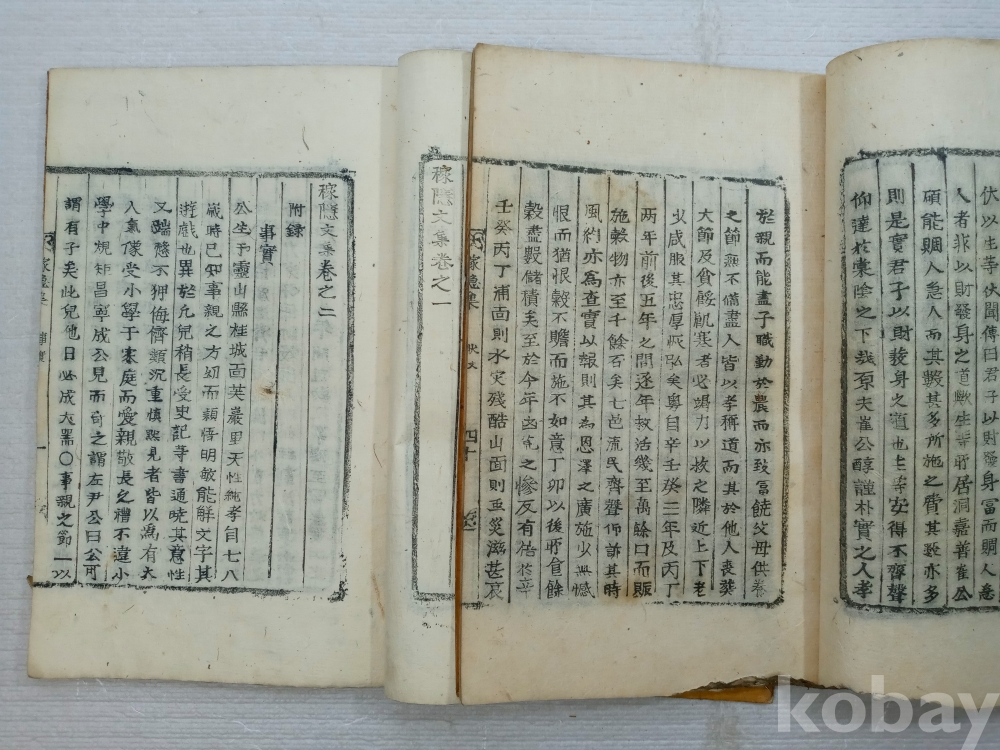 伏以生等伏聞傳曰君子以財發身富而賙人急
人者非以財發身之道歟生等所居洞嘉善崔公
碩能賙人急人而其穀其多所施之費其數亦多
則是實君子以財發身之道也生等安得不齊聲
仰達於棠陰之下哉原夫崔公醇謹朴實之人孝
於親而能盡子職勤於農而亦致富饒父母供養
之節無不備盡人皆以孝稱道而其於他人喪葬
大節及貧餒飢寒者必竭力以救之隣近上下老
少咸服其忠厚恢弘矣粤自辛壬癸三年及丙丁
兩年前後五年之間逐年救活幾至萬餘口而賑
施穀物亦至千餘石矣七邑流民齊聲仰訴其時
風約亦為查實以報則其為恩澤之廣施少無憾
恨而猶恨穀不贍而施不如意丁卯以後所食餘
穀盡數儲積矣至於今年凶荒之慘反有倍於辛
壬癸丙丁浦面則水灾殘酷山面則虫災滋甚哀
稼隱集
四十
稼隱文集卷之一
稼隱文集卷之二
附錄
事實
公生于靈山縣桂城面芙巖里天性純孝自七八
歲時已知事親之方幼而穎悟明敏能解文字其
遊戲也異於凡兒稍長受史記等書通曉其意性
又端慤不狎侮儕類沉重慎默見者皆以為有大
人氣像受小學于家庭而愛親敬長之禮不違小
學中規矩昌寧成公見而奇之謂左尹公曰公可
謂有子矣此兒他日必成大器〇事親之節一以
稼隱集
一
kobay